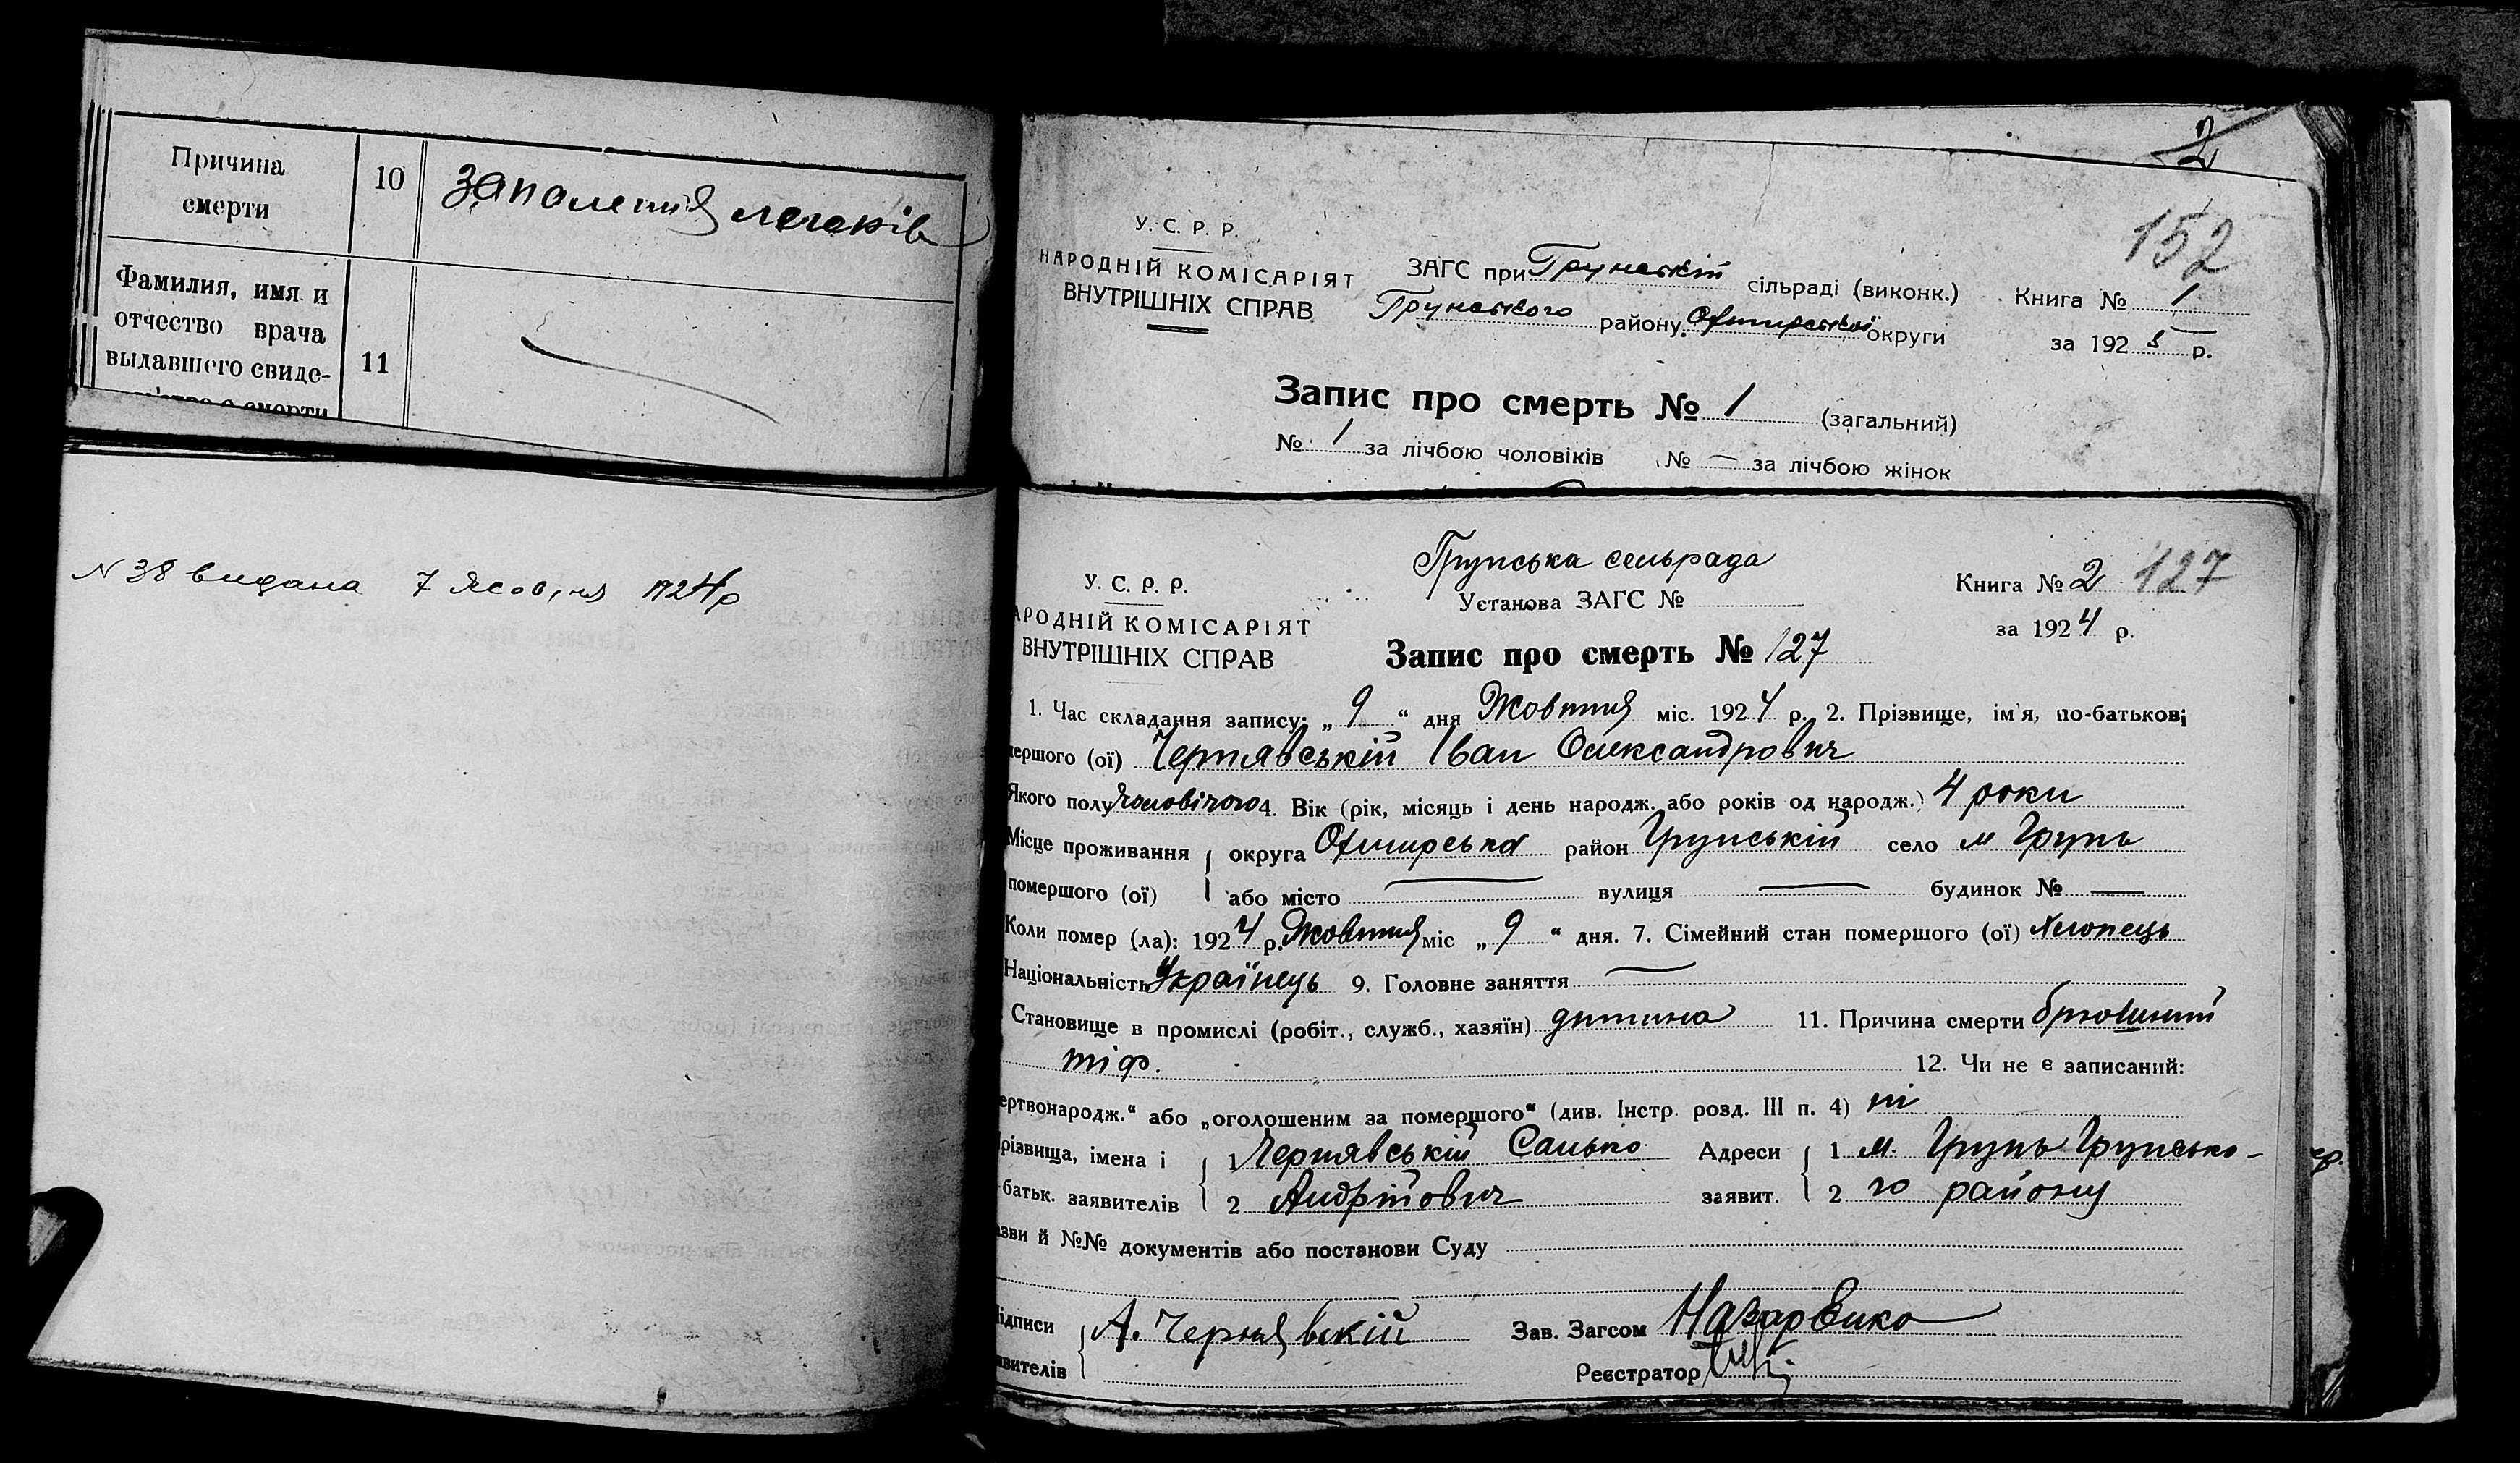 Причина
смерти
10
запаления легеків
Фамилия, имя и
отчество врача
выдавшего свиде-
11
N 38 видана 7 Жовтня 1924 р
2
152
У. С. Р. Р.
НАРОДНІЙ КОМІСАРІЯТ
ВНУТРІШНІХ СПРАВ
ЗАГС при Грунській сільраді (виконк.)
Грунського району Охтирської округи
Книга № 1
за 1925 р.
Запис про смерть № 1 (загальний)
№ 1 за лічбою чоловіків № — за лічбою жінок
Грунська сельрада
У. С. Р. Р.
АРОДНІЙ КОМІСАРІЯТ
ВНУТРІШНІХ СПРАВ
Установа ЗАГС №
Книга № 2 127
за 1924 р.
Запис про смерть № 127
1. Час складання запису: „ 9 “ дня Жовтня міс. 1924 р. 2. Прізвище, ім'я, по-батькові
мершого (ої) Чернявський Іван Олександрович
Якого полу чоловічого 4. Вік (рік, місяць і день народж. або років од народж.) 4 роки
Місце проживання округа Охтирська район Грунській село м Грунь
помершого (ої) або місто — вулиця — будинок № —
Коли помер (ла): 1924 р. Жовтня міс „ 9 “ дня. 7. Сімейний стан помершого (ої) хлопець
Національність Українець 9. Головне заняття —
Становище в промислі (робіт., служб., хазяїн) дитина 11. Причина смерти брюшний
тіф. 12. Чи не є записаний:
ертвонародж.“ або „оголошеним за помершого“ (див. Інстр. розд. III п. 4) ні
різвища, імена і 1 Чернявській Санько Адреси 1 м. Грунь Грунсько-
батьк. заявителів 2 Андрійович заявит. 2 го району
азви й №№ документів або постанови Суду
ідписи А. Чернявский Зав. Загсом Назаренко
явителів Реєстратор